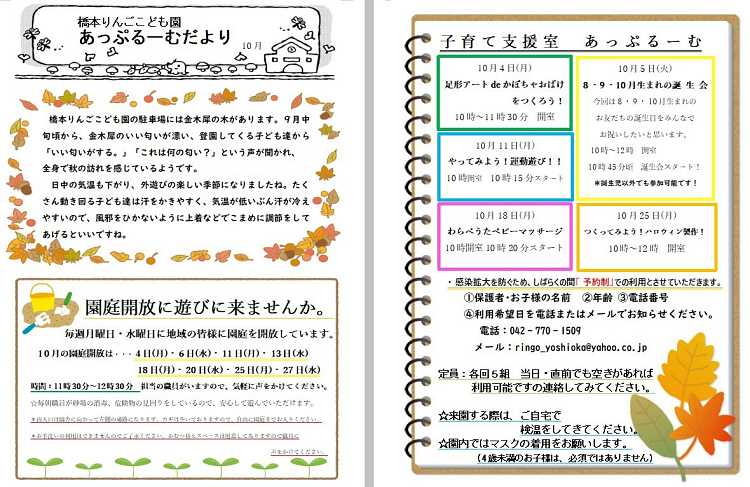 橋本りんごこども園
あっぷるーむだより
10月
橋本りんごこども園の駐車場には金木犀の木があります。9月中
旬頃から、金木犀のいい匂いが漂い、登園してくる子ども達から
「いい匂いがする。」「これは何の匂い？」という声が聞かれ、
全身で秋の訪れを感じているようです。
日中の気温も下がり、外遊びの楽しい季節になりましたね。たく
さん動き回る子ども達は汗をかきやすく、気温が低いぶん汗が冷え
やすいので、風邪をひかないように上着などでこまめに調節をして
あげるといいですね。
園庭開放に遊びに来ませんか。
毎週月曜日・水曜日に地域の皆様に園庭を開放しています。
10月の園庭開放は・・・4日(月)・6日(水)・11日(月)・13日(水)
18日(月)・20日(水)・25日(月)・27日(水)
時間：11時30分～12時30分 担当の職員がいますので、気軽に声をかけてください。
☆毎朝職員が砂場の消毒、危険物の見回りをしているので、安心して遊んでいただけます。
声をかけてください。
子育て支援室 あっぷるーむ
10月4日(月)
足形アートdeかぼちゃおばけ
をつくろう！
10時～11時30分 開室
10月11日(月)
やってみよう！運動遊び！！
10時開室 10時15分スタート
10月18日(月)
わらべうたベビーマッサージ
10時開室 10時20分スタート
10月5日(火)
8・9・10月生まれの誕生会
今回は8・9・10月生まれの
お友だちの誕生日をみんなで
お祝いしたいと思います。
10時～12時 開室
10時45分頃 誕生会スタート！
＊誕生児以外でも参加可能です！
10月25日(月)
つくってみよう！ハロウィン製作！
10時～12時 開室
・感染拡大を防ぐため、しばらくの間「予約制」での利用とさせていただきます。
①保護者・お子様の名前 ②年齢 ③電話番号
④利用希望日を電話またはメールでお知らせください。
電話：042－770－1509
メール：ringo_yoshioka@yahoo.co.jp
定員：各回5組 当日・直前でも空きがあれば
利用可能ですの連絡してみてください。
☆来園する際は、ご自宅で
検温をしてきてください。
☆園内ではマスクの着用をお願いします。
（4歳未満のお子様は、必須ではありません）